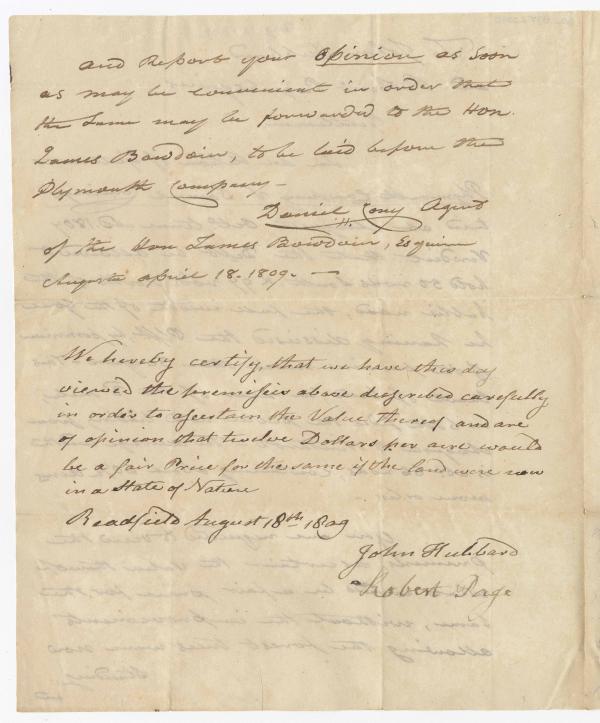 and Report your opinion as soon
as may be convenient in order that
the Same may be forwarded to the Hon.
James Bowdoin, to be laid before the
Plymouth Company —
Daniel Cony Agent
of the Hon James Bowdoin, Esquire
Augusta April 18. 1809. —
We hereby certify, that we have this day
viewed the premisies above described carefully
in order to ascertain the Value thereof and are
of opinion that twelve Dollars per acre would
be a fair Price for the same if the land were now
in a State of Nature
Readfield August 18th 1809
John Hubbard
Robert Page